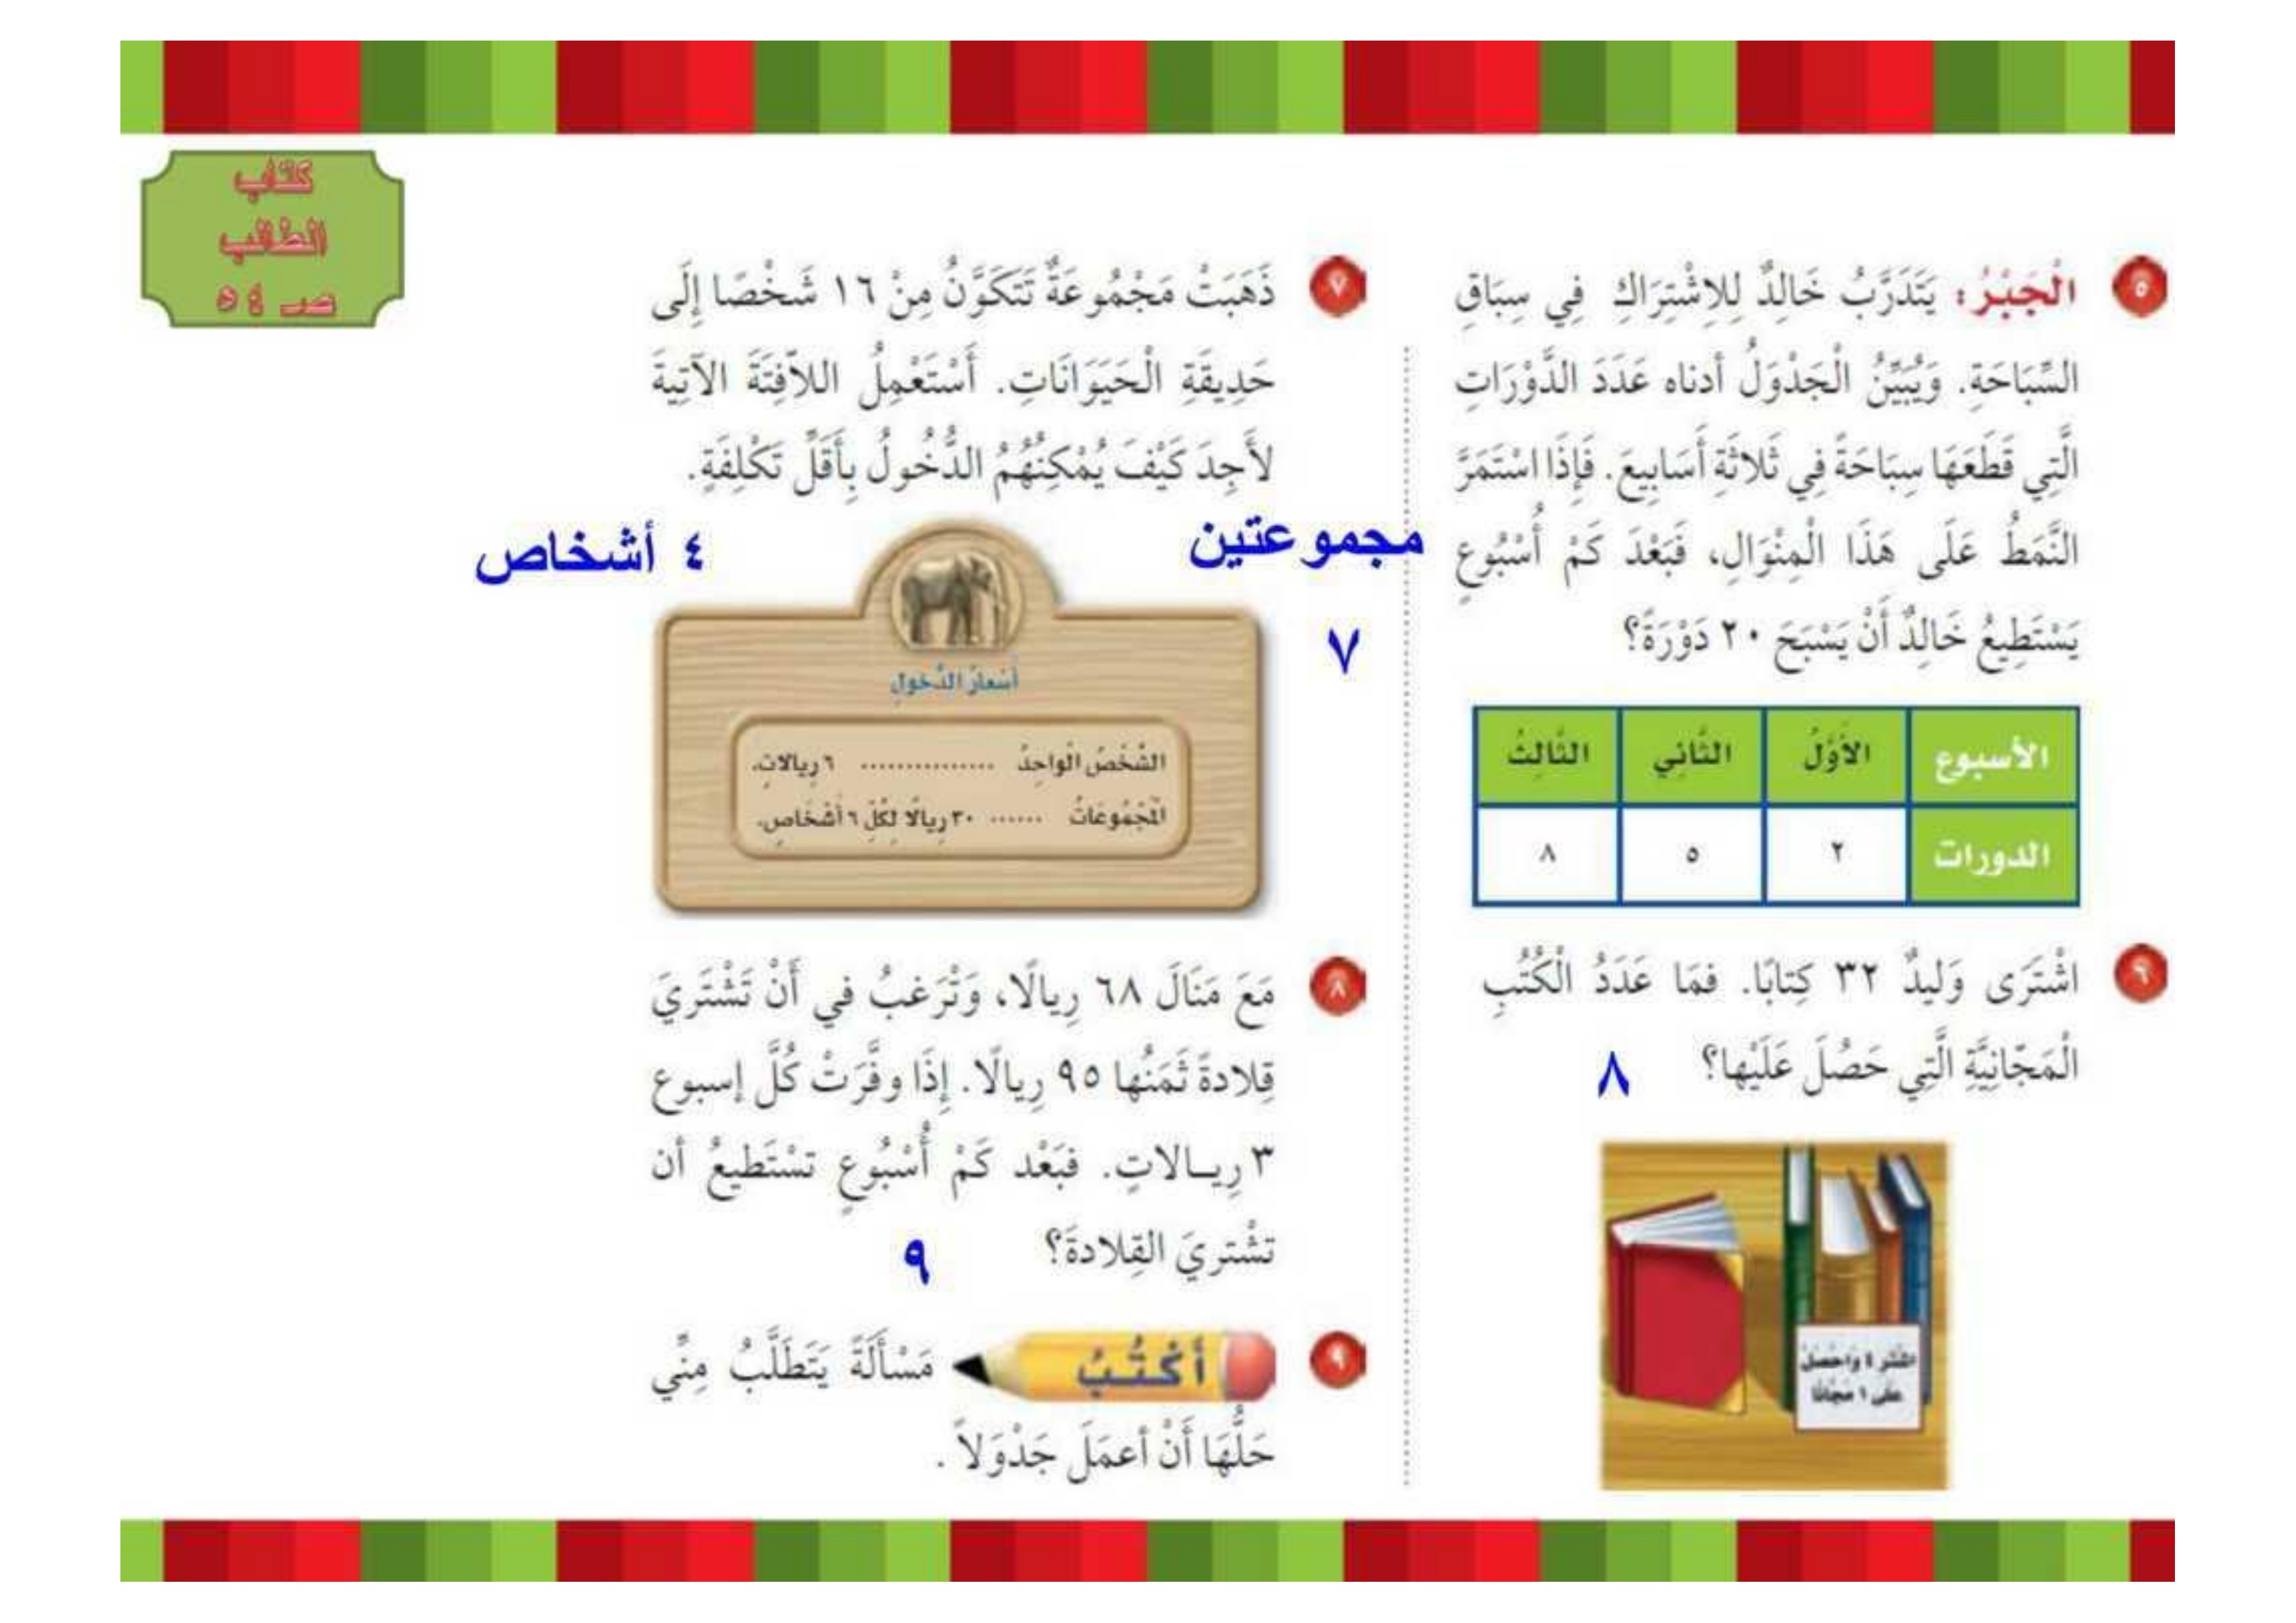 كتاب
الطالب
صـ ٥٤
٥ الْجَبْرُ: يَتَدَرَّبُ خَالِدٌ لِلِاشْتِرَاكِ فِي سِبَاقِ
السِّبَاحَةِ. وَيُبَيِّنُ الْجَدْوَلُ أدناه عَدَدَ الدَّوْرَاتِ
الَّتِي قَطَعَهَا سِبَاحَةً فِي ثَلاثَةِ أَسَابِيعَ. فَإِذَا اسْتَمَرَّ
النَّمَطُ عَلَى هَذَا الْمِنْوَالِ، فَبَعْدَ كَمْ أُسْبُوعٍ
يَسْتَطِيعُ خَالِدٌ أَنْ يَسْبَحَ ٢٠ دَوْرَةً؟
٧
الأسبوع الأَوَّلُ الثَّانِي الثَّالِثُ
الدورات ٢ ٥ ٨
٦ اشْتَرَى وَليدٌ ٣٢ كِتابًا. فمَا عَدَدُ الْكُتُبِ
الْمَجّانِيَّةِ الَّتِي حَصُلَ عَلَيْها؟ ٨
اشْتَرِ ٤ وَاحْصَلْ
على ١ مجّانًا
٧ ذَهَبَتْ مَجْمُوعَةٌ تَتَكَوَّنُ مِنْ ١٦ شَخْصًا إِلَى
حَدِيقَةِ الْحَيَوَانَاتِ. أَسْتَعْمِلُ اللاّفِتَةَ الآتِيةَ
لأَجِدَ كَيْفَ يُمْكِنُهُمُ الدُّخُولُ بِأَقَلِّ تَكْلِفَةٍ.
مجموعتين ٤ أشخاص
أسْعارُ الدُّخولِ
الشَّخصُ الْواحِدُ ............... ٦ ريالاتٍ.
الْمَجْمُوعَاتُ ...... ٣٠ ريالًا لِكُلِّ ٦ أَشْخَاصٍ.
٨ مَعَ مَنَالَ ٦٨ رِيالًا، وَتْرَغبُ في أَنْ تَشْتَريَ
قِلادةً ثَمَنُها ٩٥ رِيالًا. إِذَا وفَّرَتْ كُلَّ إسبوع
٣ رِيـالاتٍ. فبَعْد كَمْ أُسْبُوعٍ تسْتَطيعُ أن
تشْتريَ القِلادةَ؟ ٩
٩ أَكْتُبُ مَسْأَلَةً يَتَطَلَّبُ مِنِّي
حَلُّهَا أَنْ أعمَلَ جَدْوَلاً .